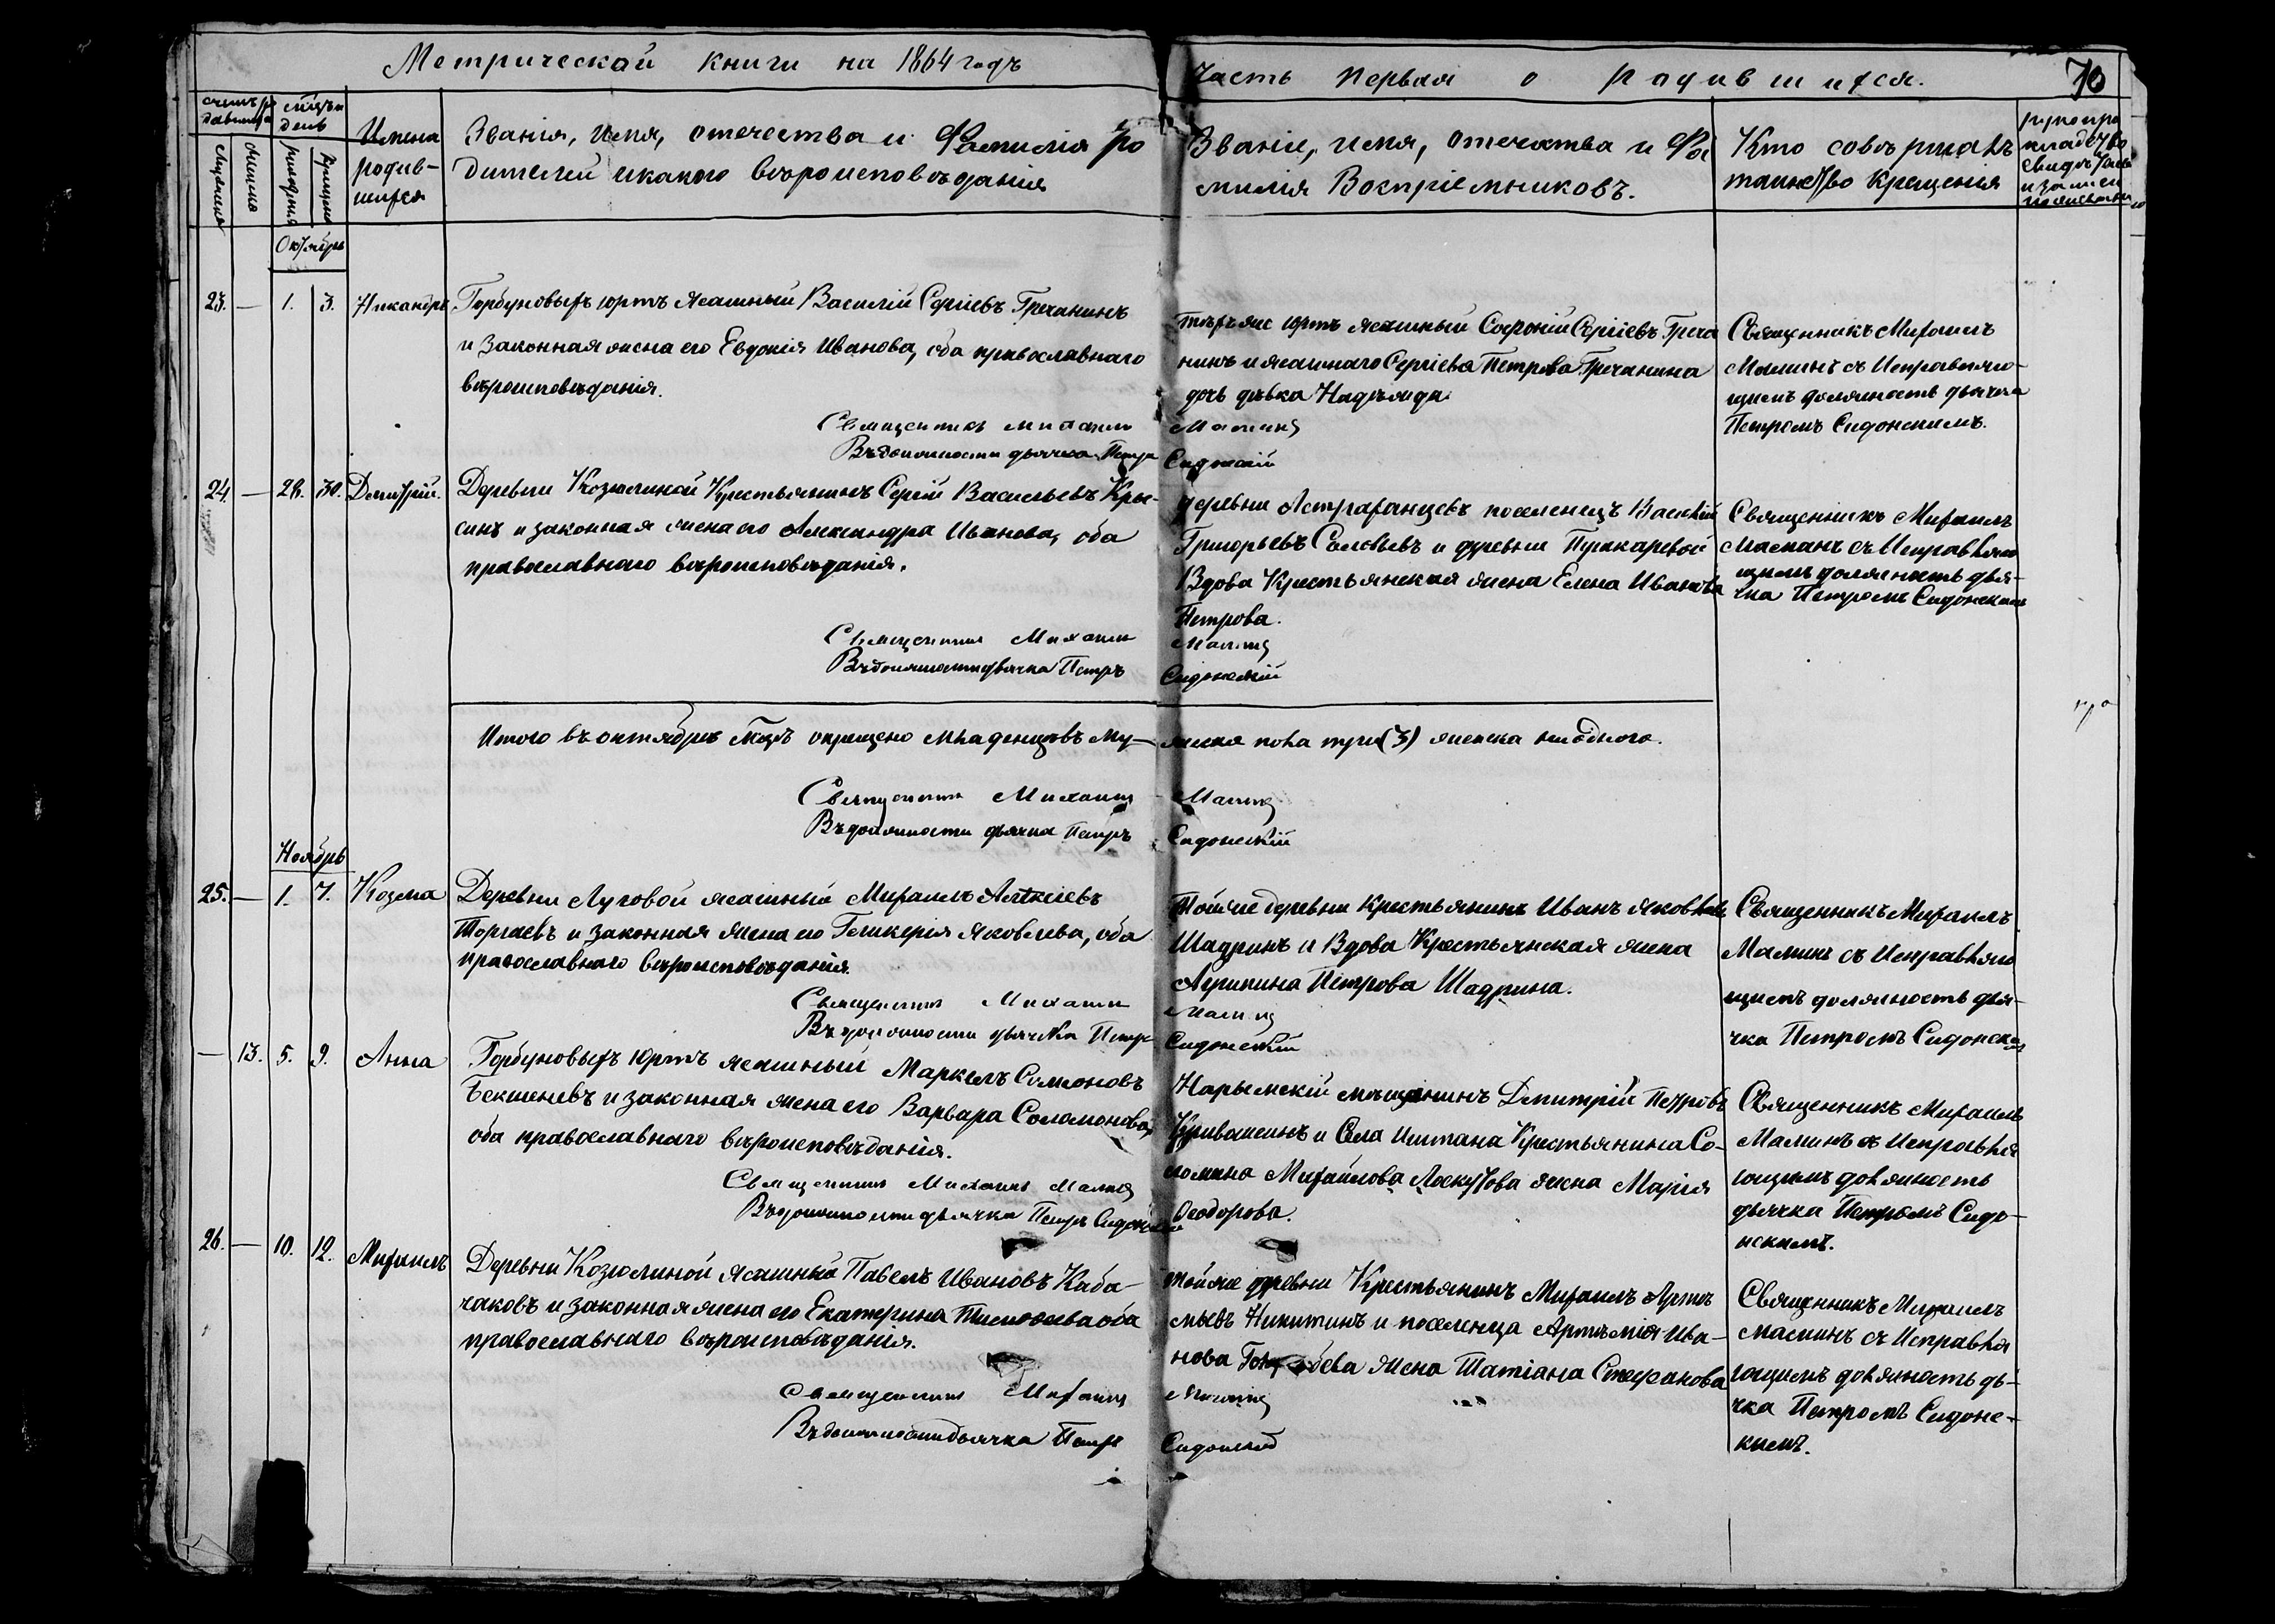 Метрической книги на 1864 годъ
Часть первая о родившихся.
70
счетъ ро
дившихся
мѣсяцъ и
день
мужеска
женска
рожденія
крещенія
Имена
родив-
шихся
Званія, имя, отечества и Фамилія ро
дителей и какого вѣроисповѣданія
Званіе, имя, отечества и Фа
милія Воспріемниковъ.
Кто совѣршалъ
таинство Крещенія
Октябрь
23. — 1. 3. Никандръ
Горбуновыхъ юртъ ясашный Василій Сергіевъ Гречанинъ
и законная жена его Евдокія Иванова, оба православнаго
вѣроисповѣданія.
Священникъ Михаилъ Малинъ
Въ должности дьячка Петръ Сидонскій
Тѣхъ же юртъ ясашный Софроній Сергіевъ Греча
нинъ и ясашнаго Сергіева Петрова Гречанина
дочь дѣвка Надѣжда
Священникъ Михаилъ
Малинъ съ Исправляю-
щимъ должность дьячка
Петромъ Сидонскимъ.
24. — 28. 30. Дмитрій.
Деревни Козюлиной Крестьянинъ Сергій Васильевъ Кры-
синъ и законная жена его Александра Иванова, оба
православнаго вѣроисповѣданія.
Священникъ Михаилъ Малинъ
Въ должности дьячка Петръ Сидонскій
деревни Астраханцевъ поселенецъ Василій
Григорьевъ Соловьевъ и деревни Пушкаревой
Вдова Крестьянская жена Елена Иванова
Петрова.
Священникъ Михаилъ
Малинъ съ Исправляю
щимъ должность дья-
чка Петромъ Сидонскимъ
Итого въ октябрѣ мѣсяцѣ окрещено младенцовъ му-
жеска пола три (3) женска ни одного.
Священникъ Михаилъ Малинъ
Въ должности дьячка Петръ Сидонскій
Ноябрь
25. — 1. 7. Козма
Деревни Луговой ясашный Михаилъ Алексіевъ
Торгаевъ и законная жена его Гликерія Яковлева, оба
православнаго вѣроисповѣданія.
Священникъ Михаилъ Малинъ
Въ должности дьячка Петръ Сидонскій
Той же деревни Крестьянинъ Иванъ Яковлевъ
Шадринъ и Вдова Крестьянская жена
Агрипина Петрова Шадрина.
Священникъ Михаилъ
Малинъ съ Исправляю
щимъ должность дья-
чка Петромъ Сидонским
— 13. 5. 9. Анна
Горбуновыхъ юртъ ясашный Маркелъ Симоновъ
Бекшеневъ и законная жена его Варвара Соломонова,
оба православнаго вѣроисповѣданія.
Священникъ Михаилъ Малинъ
Въ должности дьячка Петръ Сидонскій
Нарымскій мѣщанинъ Дмитрій Петровъ
Кривошеинъ и Села Иштана Крестьянина Со-
ломина Михайлова Лоскутова жена Марія
Ѳеодорова.
Священникъ Михаилъ
Малинъ съ Исправля
ющимъ должность
дьячка Петромъ Сидо-
нскимъ.
26. — 10. 12. Михаилъ
Деревни Козюлиной ясашный Павелъ Ивановъ Каба-
чаковъ и законная жена его Екатерина Тимофѣева оба
православнаго вѣроисповѣданія.
Священникъ Михаилъ Малинъ
Въ должности дьячка Петръ Сидонскій
Той же деревни Крестьянинъ Михаилъ Артѣ
мьевъ Никитинъ и поселенца Артѣмія Ива-
нова жена Татіана Стефанова
Священникъ Михаилъ
Малинъ съ Исправля
ющимъ должность дь-
чка Петромъ Сидонс-
кимъ.